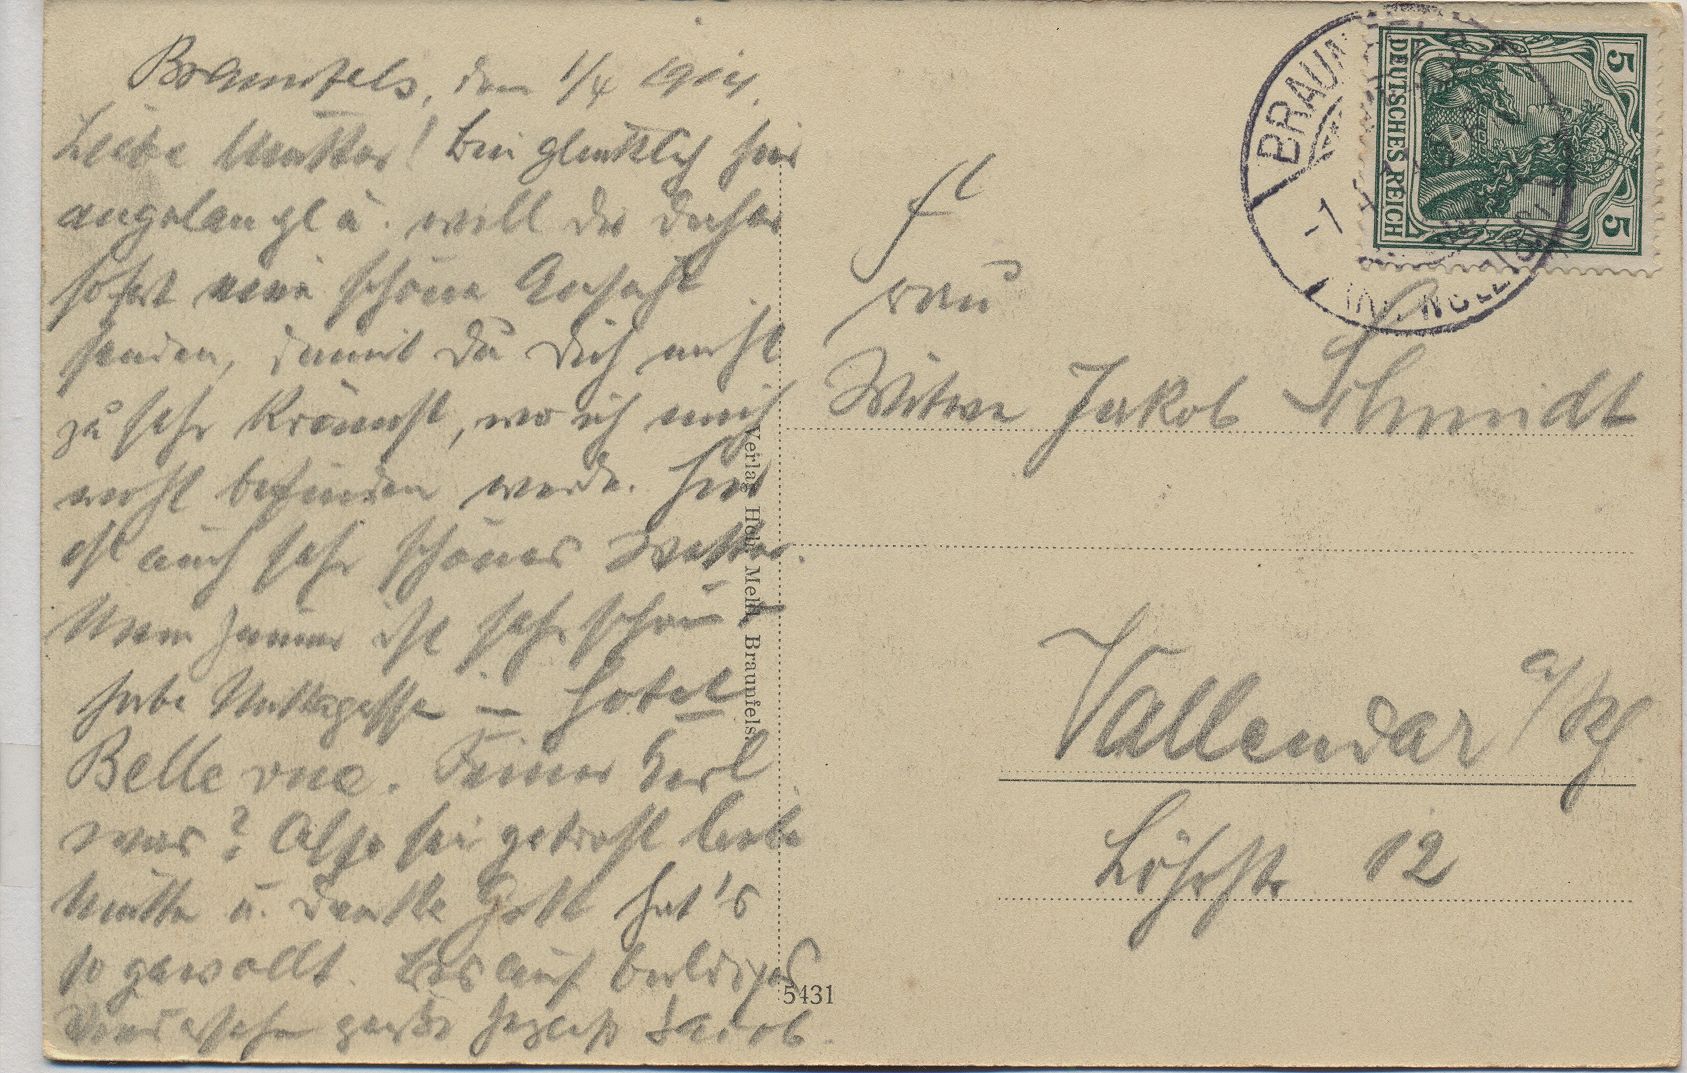 Braunfels, den 1/4 1914.
Liebe Mutter! Bin glücklich hier
angelangt u. will dir daher
sofort eine schöne Ansicht
senden, damit du dich nicht
zu sehr kränkst, wo ich mich
wohl befinden werde. Hier
ist auch sehr schönes Wetter.
Mein Zimmer ist sehr schön
habe Mittagessen im Hotel
Belle vue. Feiner Kerl
was? Also sei getrost liebe
Mutter u. denke Gott hat's
so gewollt. Bis auf baldiges
Wiedersehen grüßt herzlich Jacob.
Verlag Hch. Mehl, Braunfels.
5431
BRAUNFELS
DEUTSCHES REICH
5
5
Frau
Witwe Jakob Schmidt
Vallendar a/Rh
Löhrstr 12